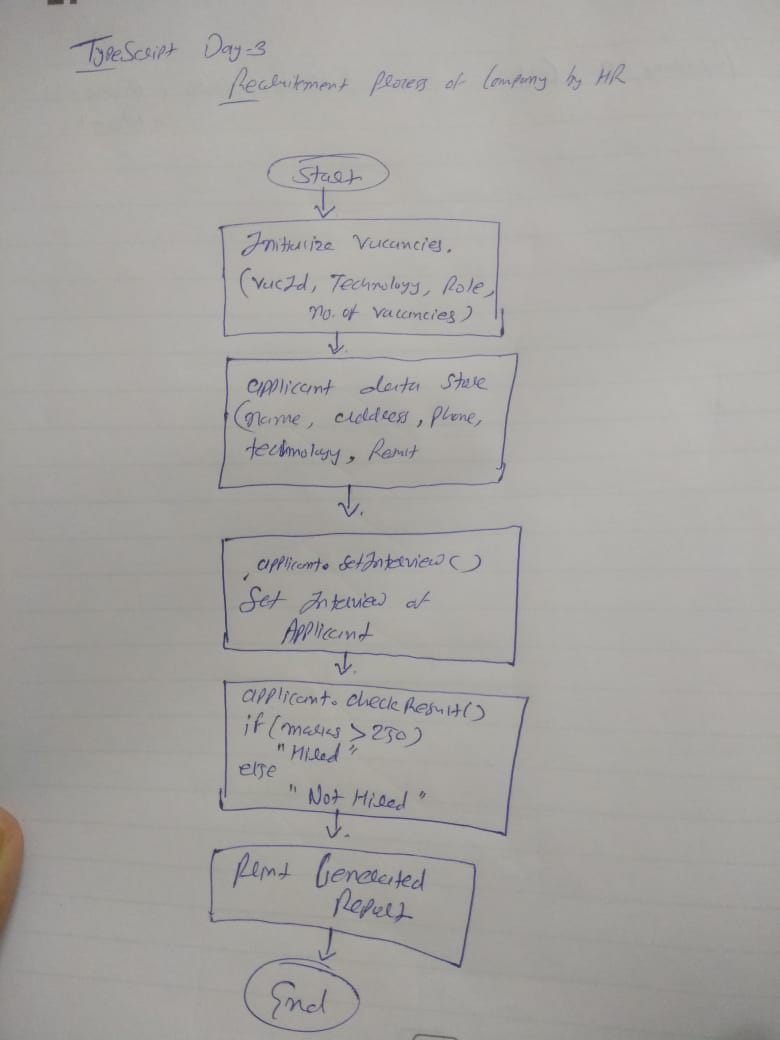 TypeScript Day-3
Recruitement Process of Company by HR
Start
Initialize Vacancies.
(vacId, Technology, Role,
no. of vacancies)
applicant data store
(name, address, phone,
technology,
applicant. setInterview()
Set Interview of
Applicant
applicant. checkResult()
if (marks > 250)
"Hired"
else
"Not Hired"
Print Generated
Report
End